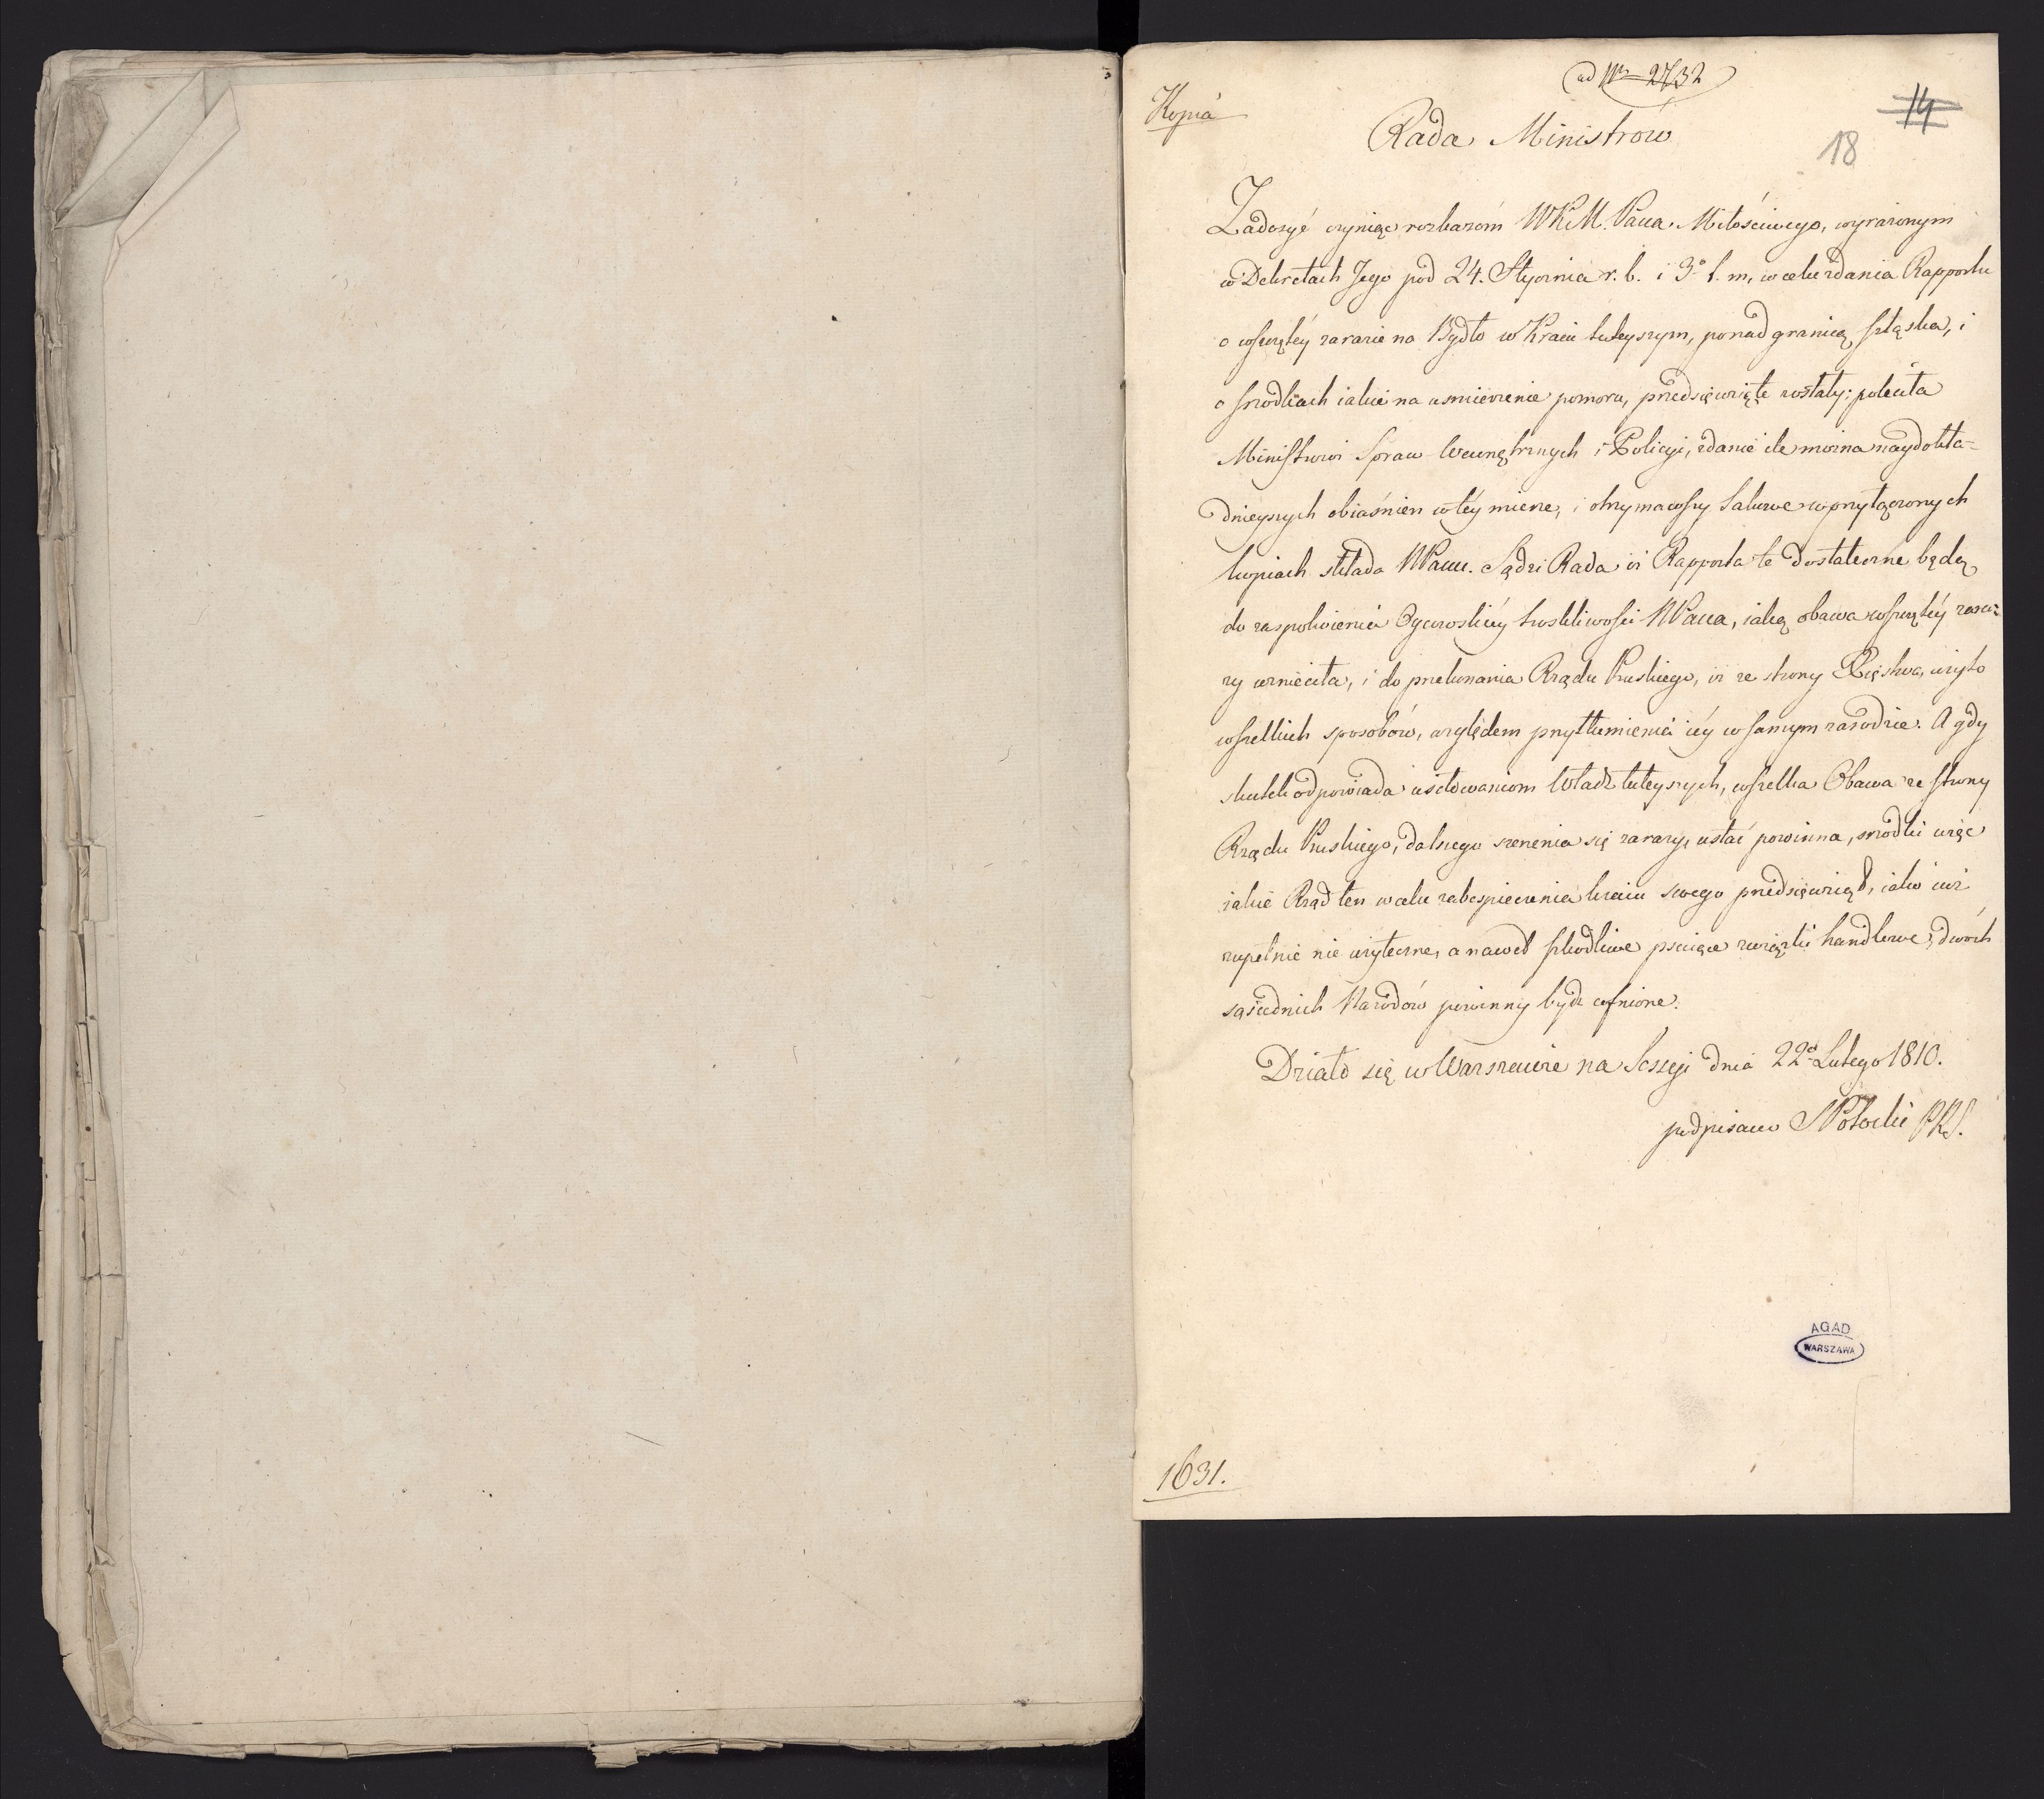 ad Nr 2732
Kopia
14
Rada Ministrów
18
Zadosyć czyniąc rozkazóm WKM. Pana Miłościwego, wyrażonym
w Dekretach Jego pod 24. Stycznia r. b. i 3° b. m, w celu zdania Rapportu
o wszczętéy zarazie na Bydło w Kraiu tuteyszym, ponad granicą szląska, i
o srzodkach iakie na usmierzenie pomoru, przedsięwzięte zostały; poleciła
Ministrowi Spraw Wewnętrznych i Policyi, zdanie ile można naydokła=
dnieyszych obiaśnien w téy mierze, i otrzymawszy takowe w przyłączonych
kopiach składa NPanu. Sądzi Rada iż Rapporta te dostateczne będą
do zaspokoienia Oycowskiéy troskliwości NPana, iaką obawa wszczętéy zara=
zy wznieciła, i do przekonania Rządu Pruskiego, iż ze strony Xięstwa, użyto
wszelkich sposobów, względem przytłumienia iéy w samym zarodzie. A gdy
skutek odpowiada usiłowaniom Władz tuteyszych, wszelka Obawa ze strony
Rządu Pruskiego, dalszego szerzenia się zarazy, ustać powinna, srzodki więc
iakie Rząd ten w celu zabespieczenia kraiu swego przedsięwziął, iako iuż
zupełnie nie użyteczne, a nawet szkodliwe psuiące związki handlowe, dwóch
sąsiednich Narodów powinny bydz cofnione.
Działo się w Warszawie na Sessyi dnia 22° Lutego 1810.
podpisano SPotocki PRS.
AGAD
WARSZAWA
1631.